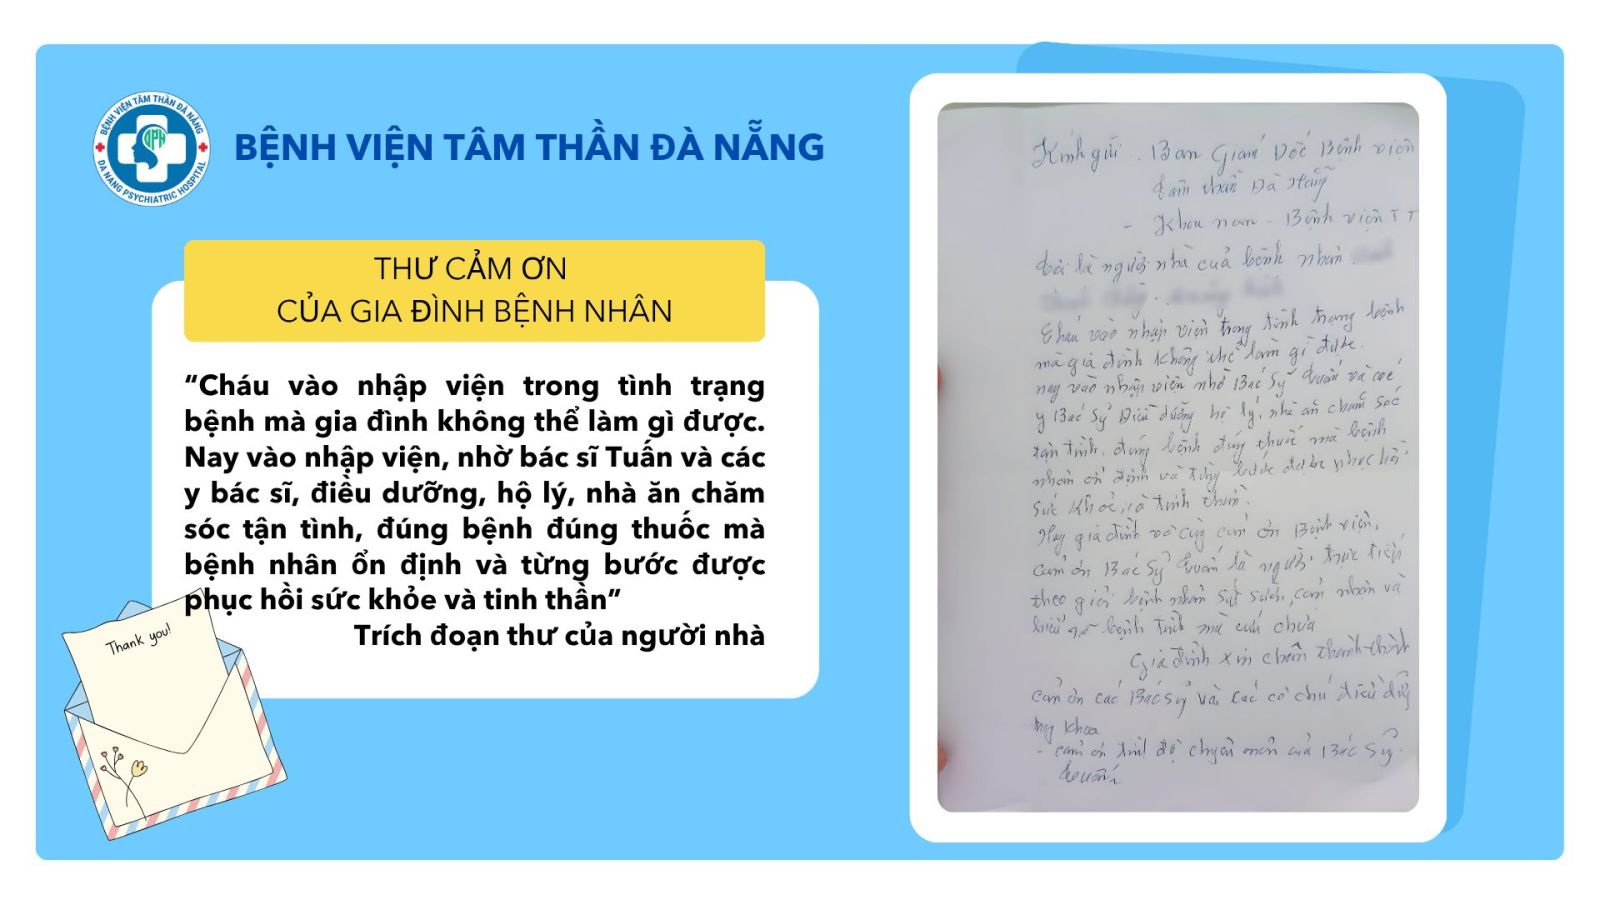 BỆNH VIỆN TÂM THẦN ĐÀ NẴNG
DA NANG PSYCHIATRIC HOSPITAL
DPH
BỆNH VIỆN TÂM THẦN ĐÀ NẴNG
THƯ CẢM ƠN
CỦA GIA ĐÌNH BỆNH NHÂN
“Cháu vào nhập viện trong tình trạng
bệnh mà gia đình không thể làm gì được.
Nay vào nhập viện, nhờ bác sĩ Tuấn và các
y bác sĩ, điều dưỡng, hộ lý, nhà ăn chăm
sóc tận tình, đúng bệnh đúng thuốc mà
bệnh nhân ổn định và từng bước được
phục hồi sức khỏe và tinh thần”
Trích đoạn thư của người nhà
Thank you!
Kính gửi. Ban Giám Đốc Bệnh viện
tâm thần Đà Nẵng
- Khoa nam - Bệnh viện TT
Tôi là người nhà của bệnh nhân
Cháu vào nhập viện trong tình trạng bệnh
mà gia đình không thể làm gì được.
nay vào nhập viện nhờ Bác Sỹ Tuấn và các
y Bác Sỹ Điều dưỡng hộ lý, nhà ăn chăm sóc
tận tình. đúng bệnh đúng thuốc mà bệnh
nhân ổn định và từng bước được phục hồi
sức khỏe, và tinh thần.
Nay gia đình vô cùng cảm ơn Bệnh viện,
cảm ơn Bác Sỹ Tuấn là người trực tiếp
theo giỏi bệnh nhân cảm nhận và
hiểu rõ bệnh tình mà cứu chữa
Gia đình xin chân thành
cảm ơn các Bác Sỹ và các cô chú điều dưỡng
trong khoa
- cảm ơn trình độ chuyên môn của Bác Sỹ.
Tuấn